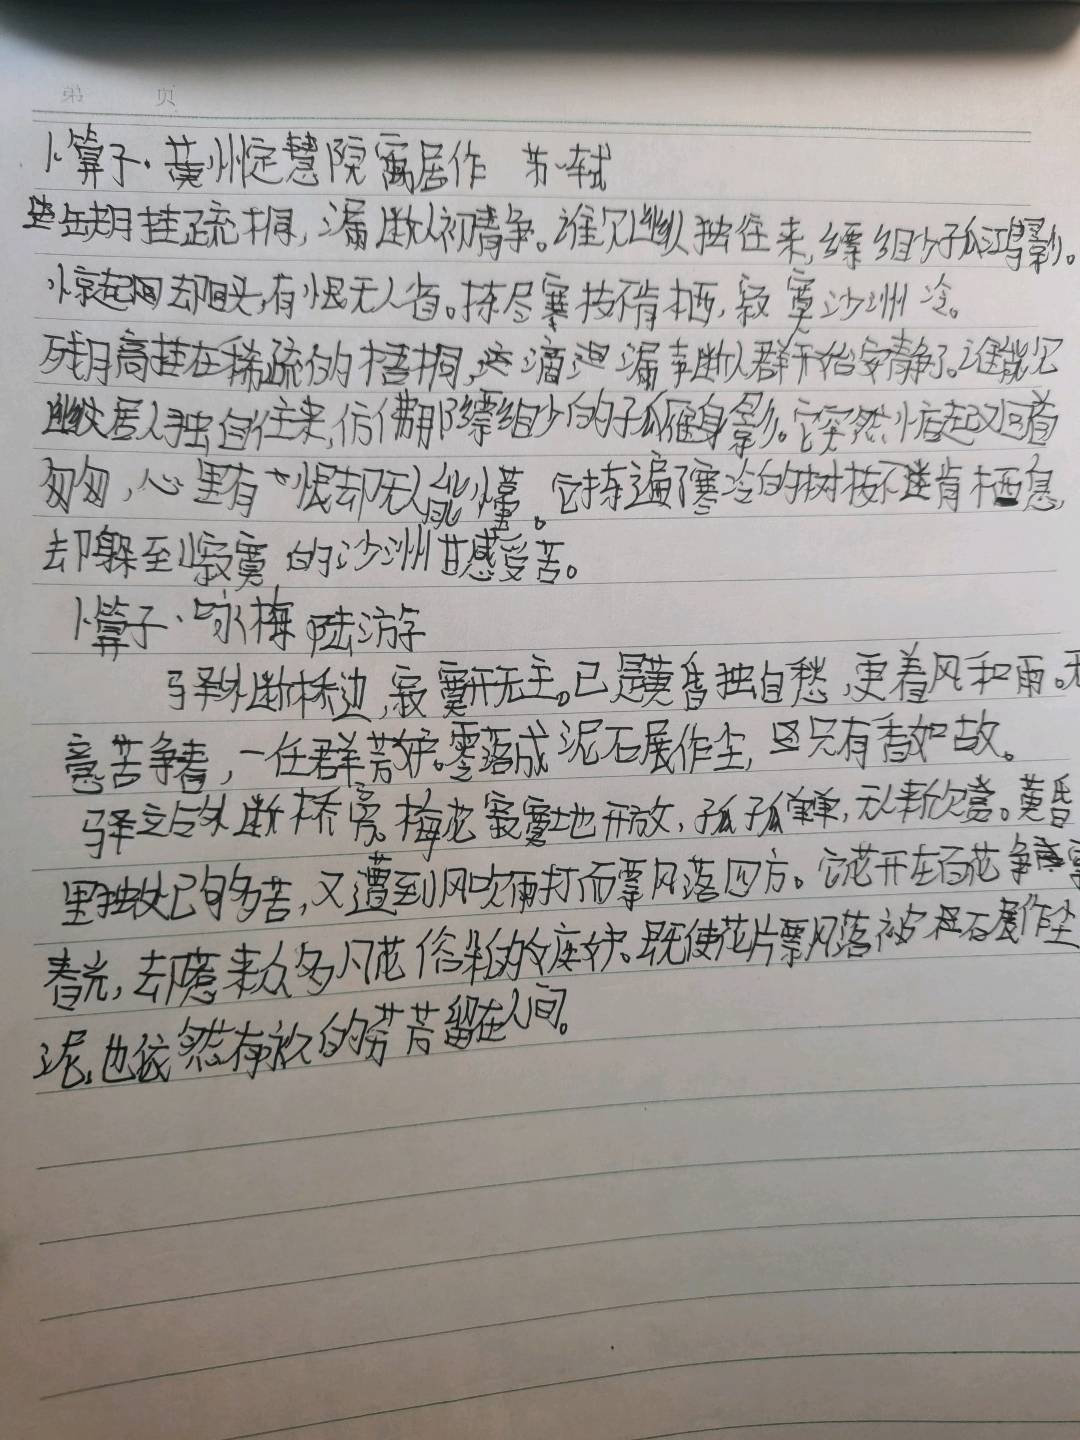 第 页
卜算子·黄州定慧院寓居作 苏轼
缺月挂疏桐,漏断人初静。谁见幽人独往来,缥缈孤鸿影。
惊起却回头,有恨无人省。拣尽寒枝不肯栖,寂寞沙洲冷。
残月高挂在稀疏的梧桐,滴漏断人群开始安静了。谁能见
幽居人独自往来,仿佛那缥缈的孤雁身影。它突然惊起又回首
匆匆,心里有恨却无人能懂。它拣遍了寒冷的树枝不肯栖息,
却躲到寂寞的沙洲甘感受苦。
卜算子·咏梅 陆游
驿外断桥边,寂寞开无主。已是黄昏独自愁,更着风和雨。无
意苦争春,一任群芳妒。零落成泥石展作尘,只有香如故。
驿站外断桥旁。梅花寂寞地开放,孤孤单单,无人来欣赏。黄昏
里独处已够多苦,又遭到风吹雨打而飘落四方。它花开在百花争
春光,却惹来众多凡花俗朵的妒。既使花片飘落被石展作尘
泥,也依然存永久的芬芳留在人间。